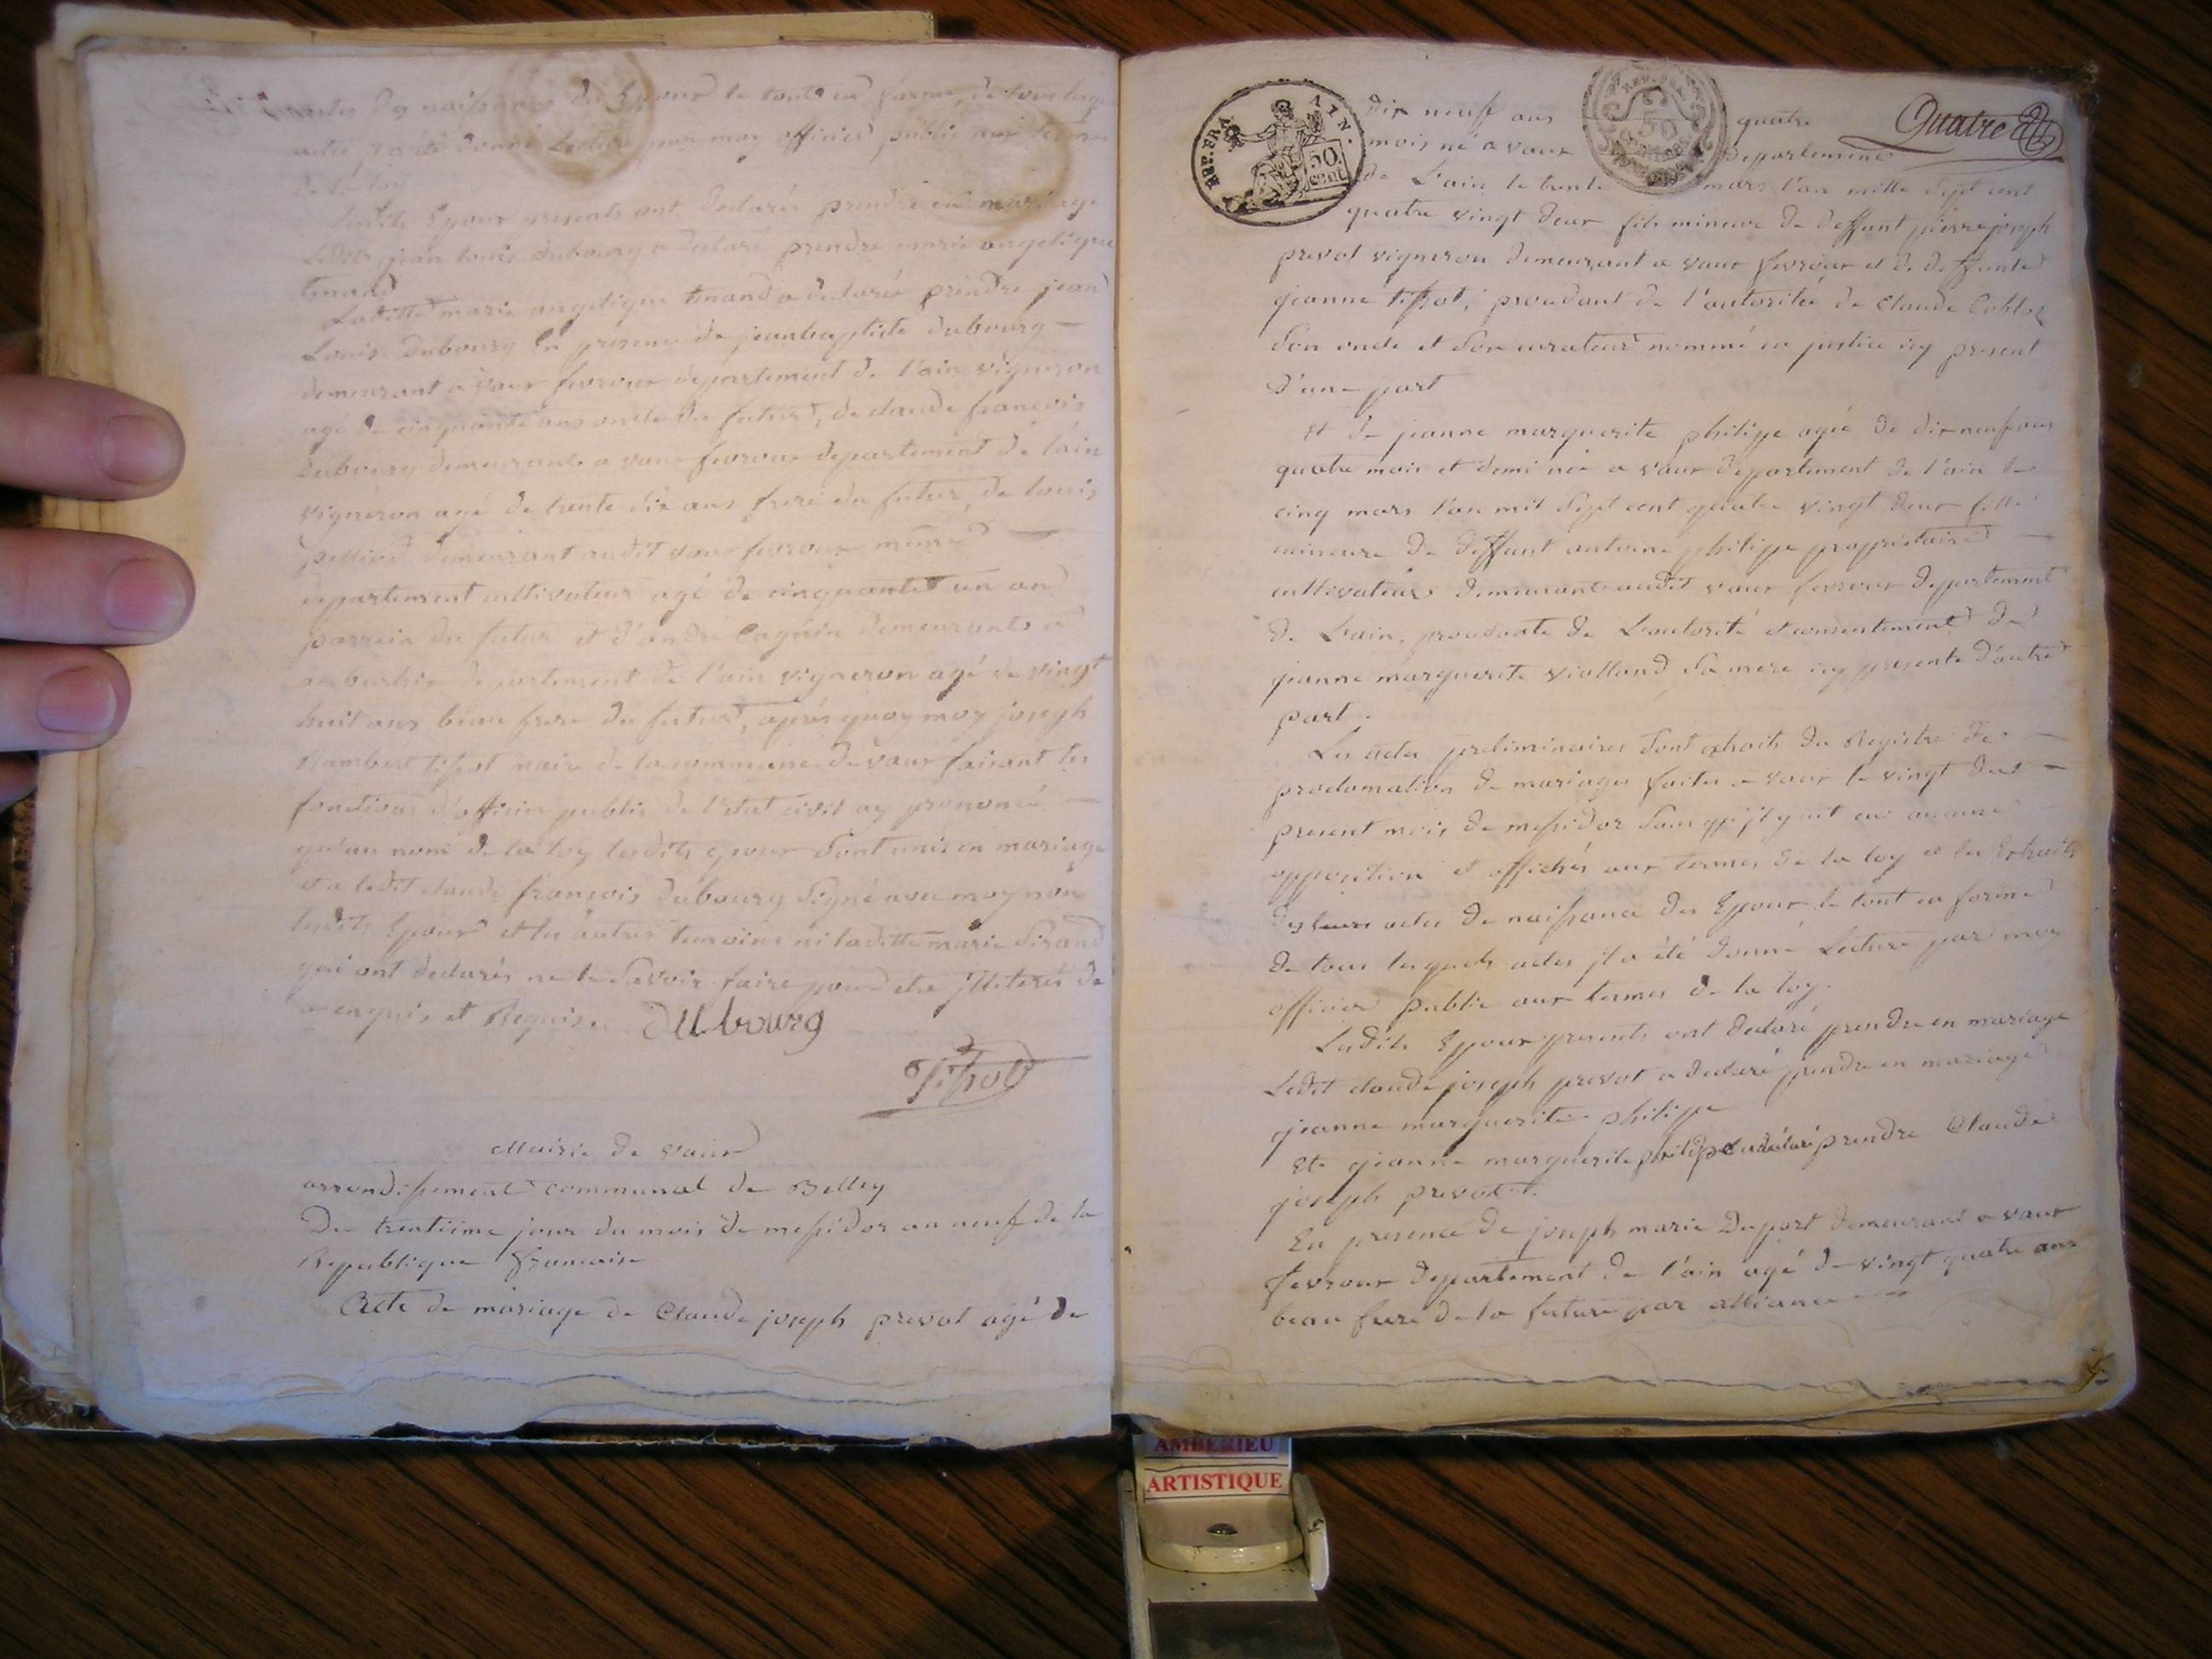 actes de naissance des Epoux le tout en forme, de tous lesquels
actes il a été donné Lecture par moy officier public aux termes
de la loy
Lesdits Epoux presents ont declarés prendre en mariage
Ledit jean louis dubourg a declaré prendre marie angelique
Laditte marie angelique a declarée prendre jean
Louis Dubourg En presence de jean baptiste dubourg
demeurant a vaux fevroux departement de l'ain vigneron
agé de cinquante ans oncle du futur, de claude françois
Dubourg demeurant a vaux fevroux departement de l'ain
vigneron agé de trente six ans frere du futur, de louis
demeurant audit vaux fevroux même
departement cultivateur agé de cinquantet un an
parrein du futur et d'andré Cagnin demeurant a
departement de l'ain vigneron agé de vingt
huit ans beau frere du futur, après quoy moy joseph
Rambert tissot maire de la commune de vaux faisant les
fonctions d'officier public de l'etat civil ay prononcé
qu'au nom de la loy lesdits epoux sont unis en mariage
et a ledit claude françois Dubourg signé avec moy non
lesdits Epoux et les autres temoins ni laditte marie
qui ont declarés ne le savoir faire pour etre jlliterés de
ce enquis et Requis. Dubourg
Tissot
Mairie de vaux
arrondissement communal de Belley
Du trentiime jour du mois de messidor an neuf de la
Republique française
Acte de mariage de Claude joseph prevot agé de
REP. FRA. AIN.
50 cent
50
Quatre
Dix neuf ans quatre
mois né a vaux Departement
de L'ain le trente mars l'an mille sept cent
quatre vingt deux fils mineur de deffunt pierre joseph
prevot vigneron demeurant a vaux fevroux et de deffunte
jeanne tissot, procedant de l'autorité de Claude
son oncle et son curateur nommé en justice icy present
d'une part
Et de jeanne marguerite philippe agée de dix neuf ans
quatre mois et demi née a vaux departement de l'ain le
cinq mars l'an mil sept cent quatre vingt deux fille
mineure de deffunt antoine philippe proprietaire
cultivateur demeurant audit vaux fevroux departement
de L'ain, procedante de L'autorité et consentement de
jeanne marguerite violland sa mere icy presente d'autre
part.
Les actes preliminaires sont extraits du Registre des
proclamation de mariages faites a vaux le vingt du
present mois de messidor sans qu'il y ait eu aucune
opposition et affichés aux termes de la loy et les Extraits
des leurs actes de naissance des Epoux le tout en forme
de tous lesquels actes jl a été donné Lecture par moy
officier public aux termes de la loy.
Lesdits Epoux presents ont declaré prendre en mariage
Ledit claude joseph prevot a declaré prendre en mariage
jeanne marguerite philippe
Et jeanne marguerite philippe a declaré prendre Claude
joseph prevot.
En presence de joseph marie Duport demeurant a vaux
fevroux departement de l'ain agé de vingt quatre ans
beau frere de la future par alliance
AMBERIEU
ARTISTIQUE